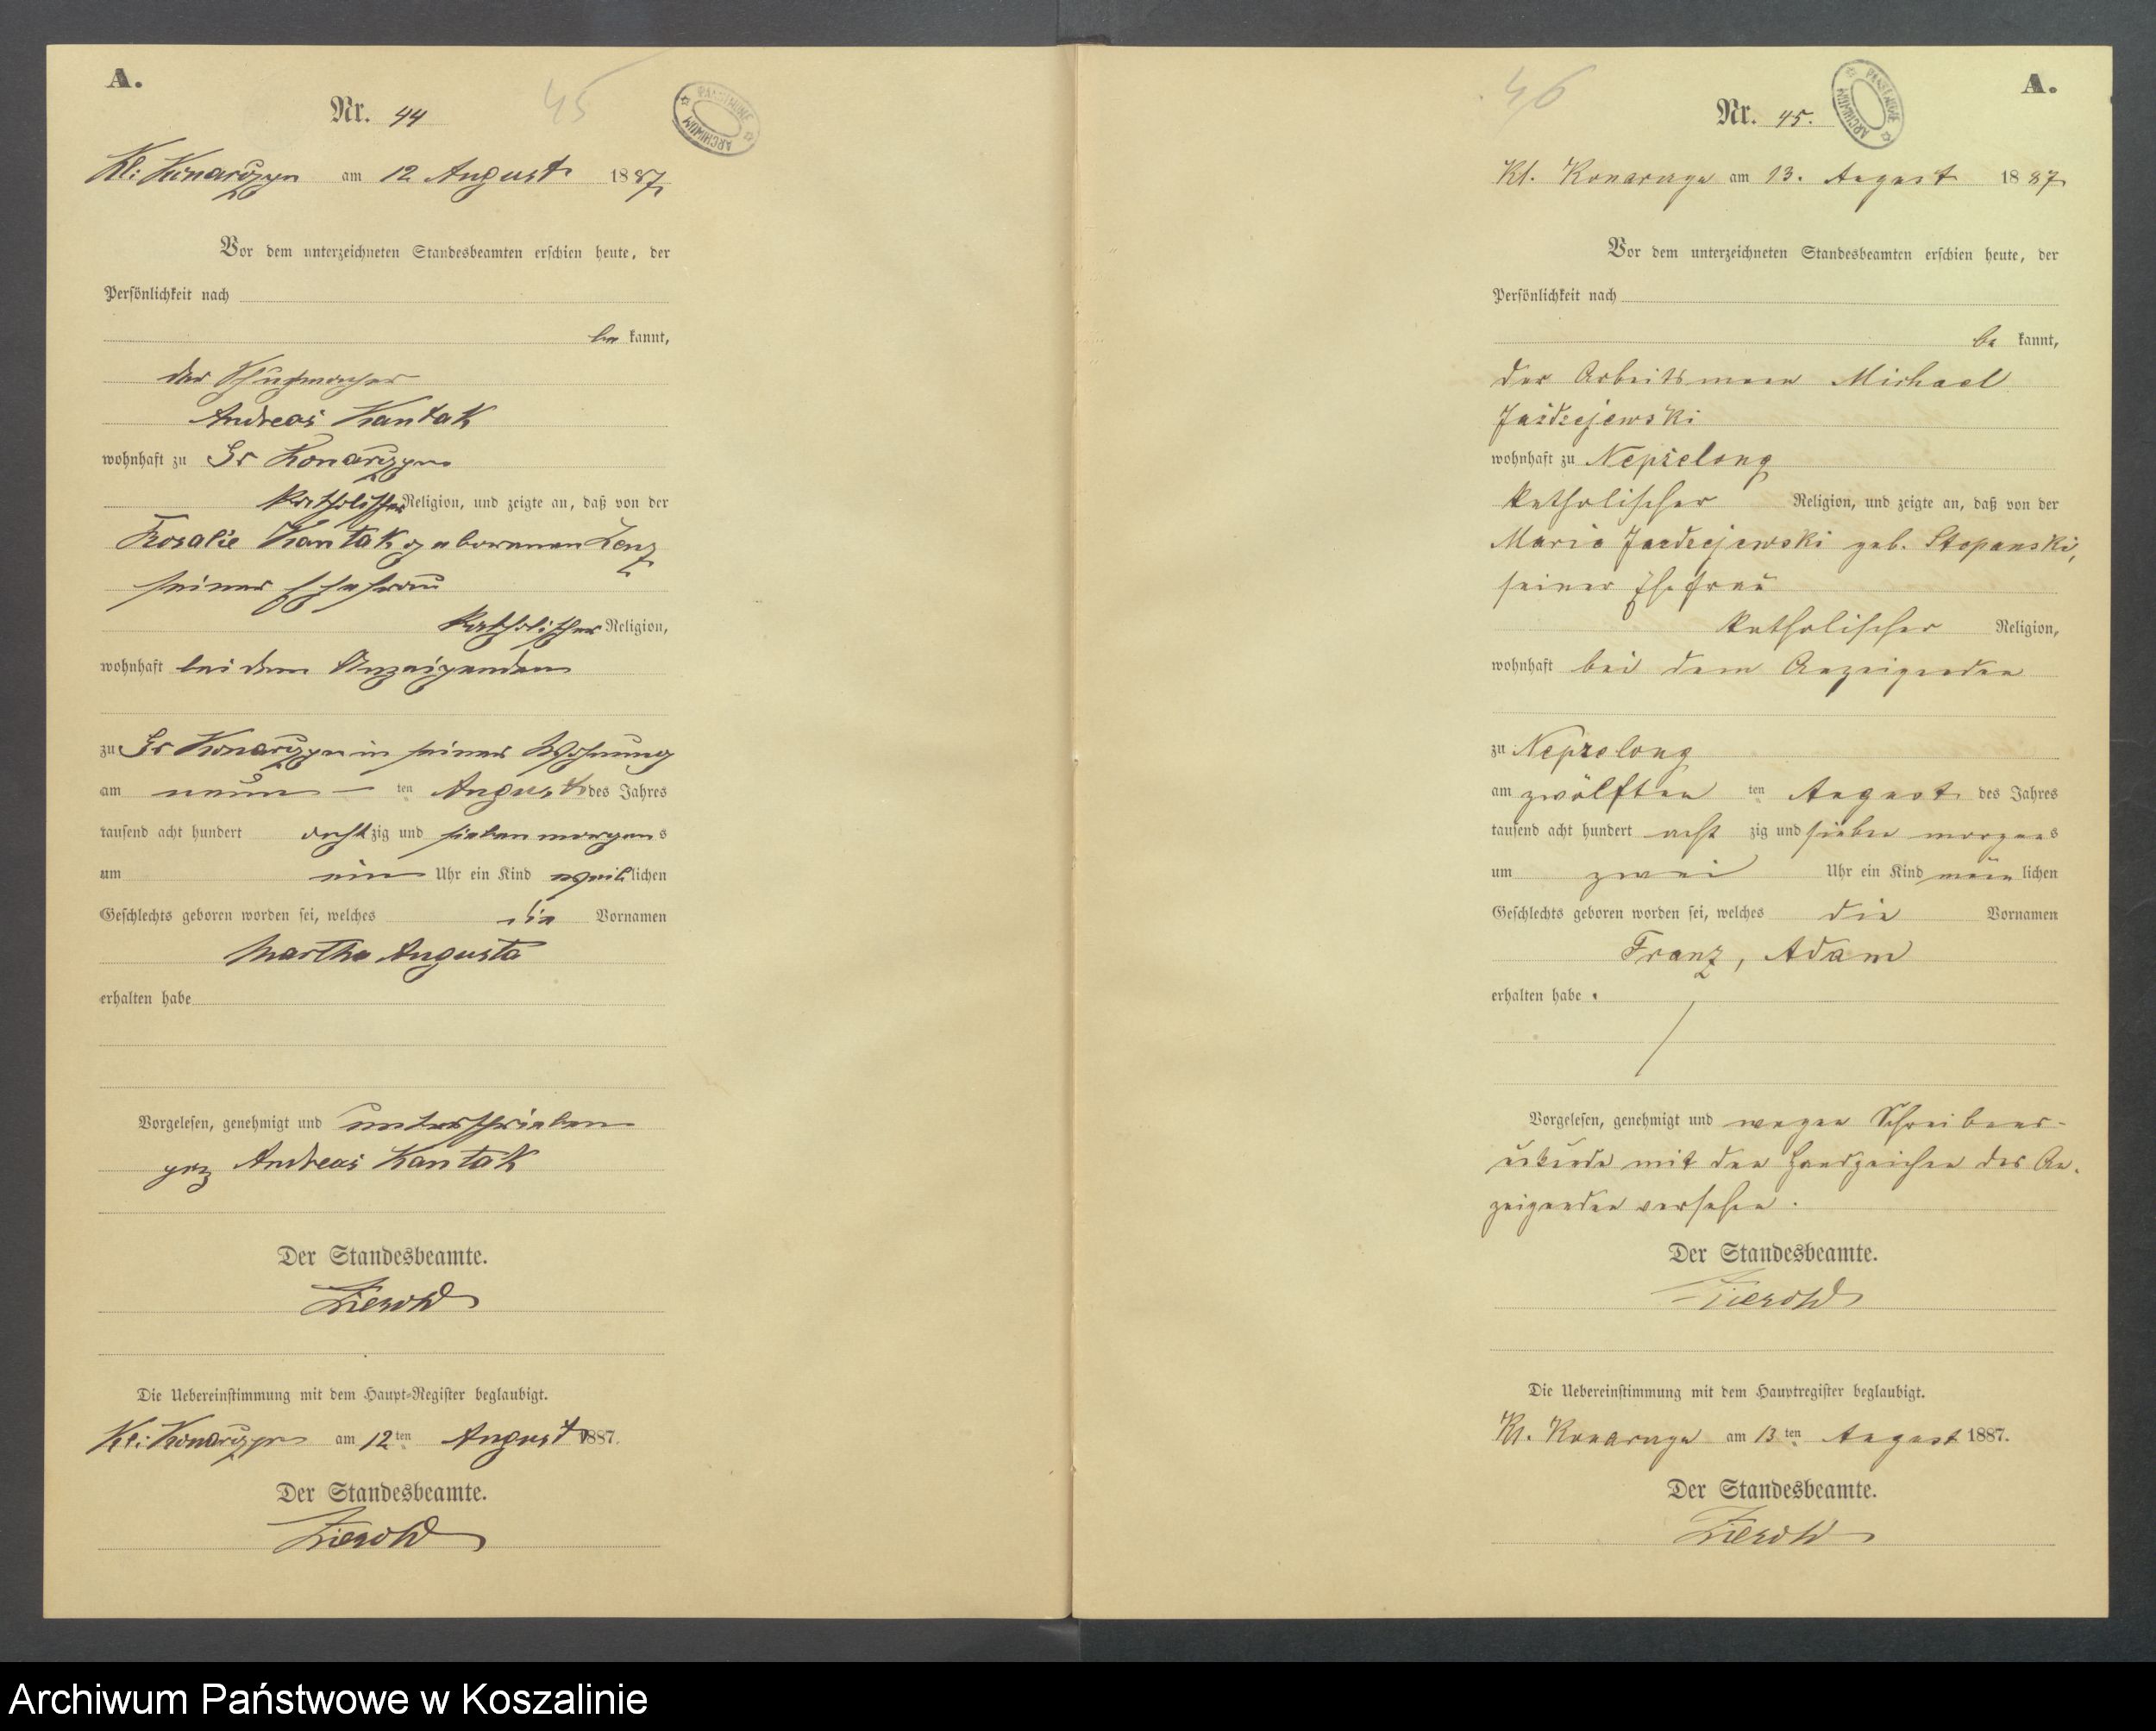 A.
Nr. 44
45
PAŃSTWOWE ARCHIWUM
Kl: Konarczyn am 12 August 1887
Vor dem unterzeichneten Standesbeamten erschien heute, der
Persönlichkeit nach
be kannt,
der Schuhmacher
Andreas Kantak
wohnhaft zu Gr Konarczyn
katholischer Religion, und zeigte an, daß von der
Rosalie Kantak geborenen Lenz
seiner Ehefrau
katholischer Religion,
wohnhaft bei dem Anzeigenden
zu Gr Konarczyn in seiner Wohnung
am neun ten August des Jahres
tausend acht hundert achtzig und sieben morgens
um ein Uhr ein Kind weiblichen
Geschlechts geboren worden sei, welches die Vornamen
Martha Augusta
erhalten habe
Vorgelesen, genehmigt und unterschrieben
gez Andreas Kantak
Der Standesbeamte.
Zierold
Die Uebereinstimmung mit dem Haupt-Register beglaubigt.
Kl: Konarczyn am 12ten August 1887.
Der Standesbeamte.
Zierold
A.
46
Nr. 45.
PAŃSTWOWE ARCHIWUM
Kl. Konarczyn am 13. August 1887
Vor dem unterzeichneten Standesbeamten erschien heute, der
Persönlichkeit nach
be kannt,
der Arbeitsmann Michael
Jazdzejewski
wohnhaft zu Nepzelong
katholischer Religion, und zeigte an, daß von der
Maria Jazdzejewski geb. Stopanski,
seiner Ehefrau
katholischer Religion,
wohnhaft bei dem Anzeigenden
zu Nepzelong
am zwölften ten August des Jahres
tausend acht hundert acht zig und sieben morgens
um zwei Uhr ein Kind männlichen
Geschlechts geboren worden sei, welches die Vornamen
Franz, Adam
erhalten habe.
Vorgelesen, genehmigt und wegen Schreibens-
unkunde mit den Handzeichen des An-
zeigenden versehen.
Der Standesbeamte.
Zierold
Die Uebereinstimmung mit dem Hauptregister beglaubigt.
Kl. Konarczyn am 13ten August 1887.
Der Standesbeamte.
Zierold
Archiwum Państwowe w Koszalinie